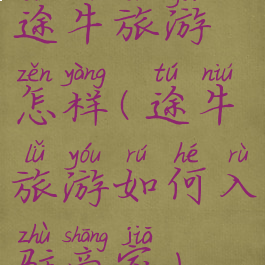 途牛旅游
zěn yàng tú niú
怎样(途牛
lǚ yóu rú hé rù
旅游如何入
zhù shāng jiā
驻商家)